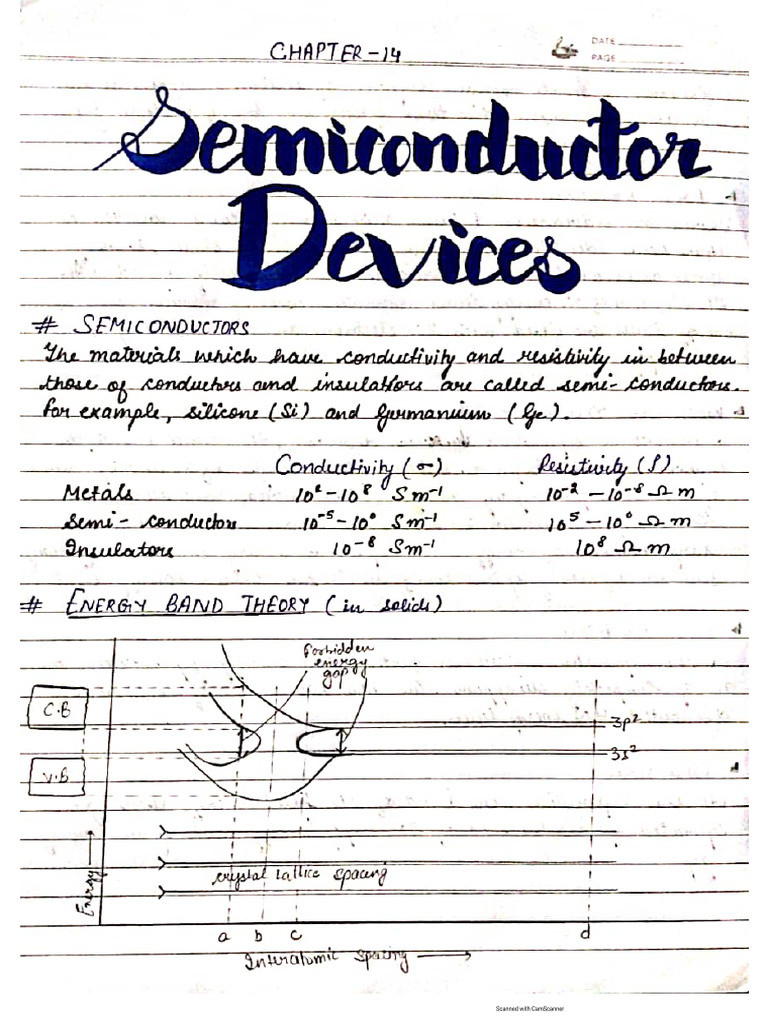 CHAPTER-14
DATE
PAGE
Semiconductor
Devices
# SEMICONDUCTORS
The materials which have conductivity and resistivity in between
those of conductors and insulators are called semi-conductors.
For example, silicone (Si) and Germanium (Ge).
Conductivity (σ) Resistivity (ρ)
Metals 10² - 10⁸ Sm⁻¹ 10⁻² - 10⁻⁸ Ω m
Semi-conductors 10⁻⁵ - 10⁰ Sm⁻¹ 10⁵ - 10⁰ Ω m
Insulators 10⁻⁸ Sm⁻¹ 10⁸ Ω m
# ENERGY BAND THEORY (in solids)
Forbidden
energy
gap
C.B
3p²
3s²
V.B
crystal lattice spacing
Energy →
a b c d
Interatomic spacing →
Scanned with CamScanner